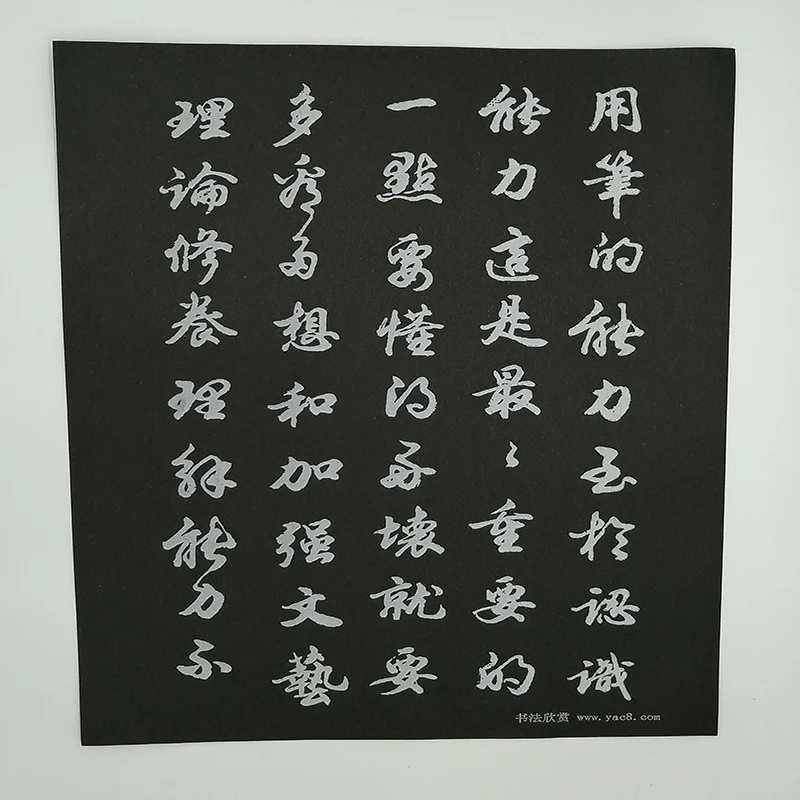 用筆的能力至於認識
能力這是最〻重要的
一點要懂得好壞就要
多看多想和加强文藝
理論修養理解能力不
书法欣赏 www.yac8.com